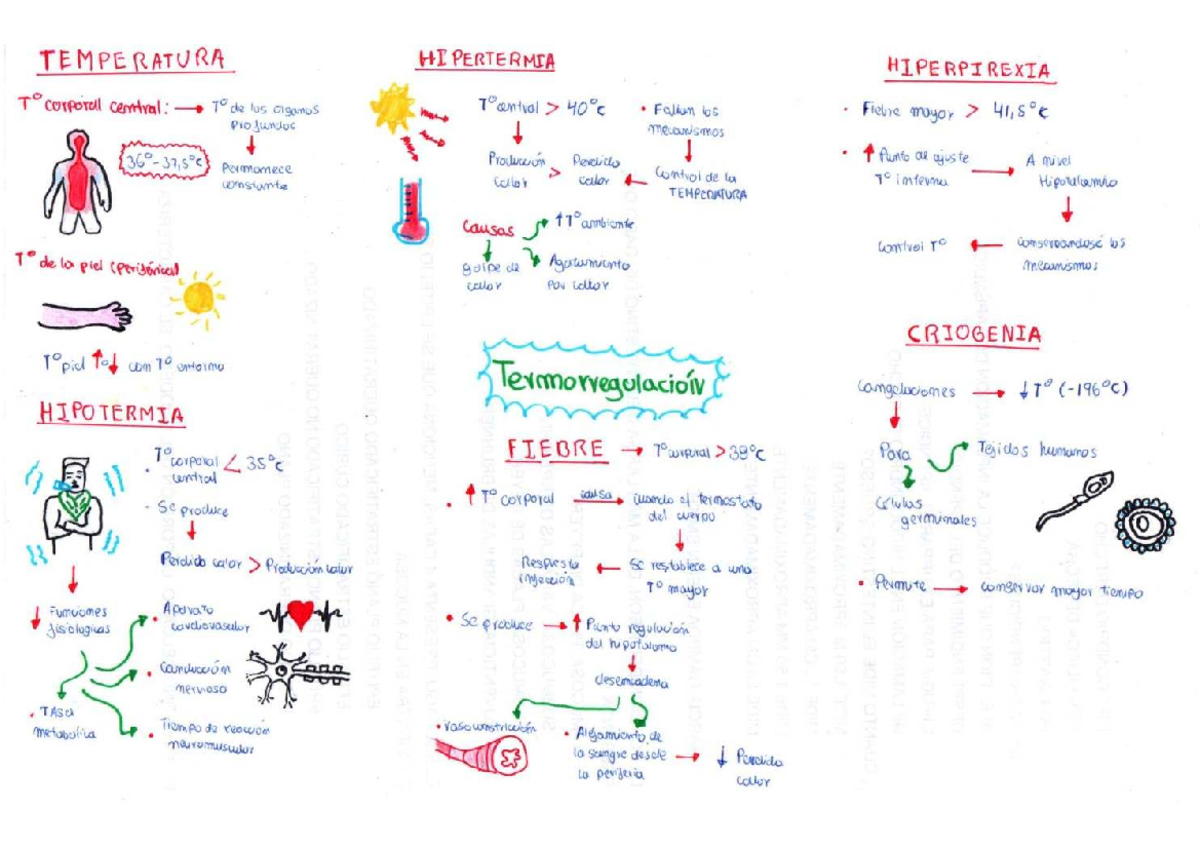 TEMPERATURA
Tº corporal central: → Tº de los órganos
profundos
36º-37,5ºc
Permanece
constante
Tº de la piel (periférica)
Tº piel ↑o↓ con Tº entorno
HIPOTERMIA
Tº corporal < 35ºc
central
- Se produce
Perdida calor > Producción calor
↓ Funciones
fisiologicas
• Aparato
cardiovascular
• Conducción
nerviosa
• TASA
metabolica
• Tiempo de reacción
neuromuscular
HIPERTERMIA
Tº central > 40ºc
• Fallan los
mecanismos
Producción > Perdida
calor calor
Control de la
TEMPERATURA
Causas
↑Tº ambiente
golpe de
calor
Agotamiento
por calor
Termorregulación
FIEBRE → Tº corporal > 38ºc
• ↑ Tº corporal causa → cuando el termostato
del cuerpo
Respuesta ← Se restablece a una
infección Tº mayor
• Se produce → ↑ Punto regulación
del hipotalamo
desencadena
• Vasoconstricción
• Alejamiento de
la sangre desde → ↓ Perdida
la periferia calor
HIPERPIREXIA
• Fiebre mayor > 41,5ºc
• ↑ Punto de ajuste → A nivel
Tº interna Hipotalamico
Control Tº ← conservandosé los
mecanismos
CRIOGENIA
Congelaciones → ↓Tº (-196ºC)
Para
Tejidos humanos
Células
germinales
• Permite → conservar mayor tiempo